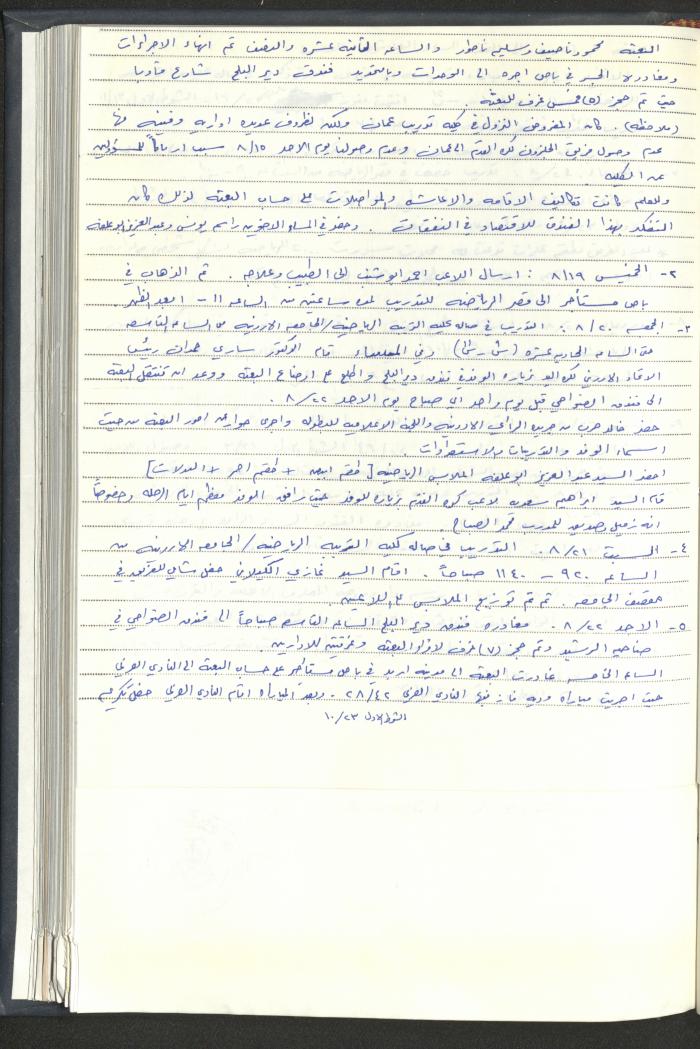 البعثة محمود ناصيف وسليم ناطور والساعه الثانيه عشره والنصف تم انهاء الاجراءات
ومغادرة الجسر في باص اجره الى الوحدات وبالتحديد فندق دير البلح شارع مادبا
حيث تم حجز (٥) خمس غرف للبعثة .
(ملاحظه) . كان المفروض النزول في كليه تدريب عمان ولكن لظروف عديده اداريه وفنيه منها
عدم وصول فريق الحلزون لكرة القدم الى عمان وعدم وصولنا يوم الاحد ٨/١٥ سببا ارباكاً للمسؤولين
عن الكليه
وللعلم كانت تكاليف الاقامه والاعاشه والمواصلات على حساب البعثة لذلك كان
التفكير بهذا الفندق للاقتصاد في النفقات . وحضر في المساء الاخوين راسم يونس وعبد العزيز ابو علفه
٢- الخميس ٨/١٩ : ارسال اللاعب احمد ابو شنب الى الطبيب وعلاجه . تم الذهاب في
باص مستأجر الى قصر الرياضه للتدريب لمدة ساعتين من الساعه ١١ - ١ بعد الظهر
٣- الجمعه ٨/٢٠ . التدريب في صاله كليه التربيه الرياضيه / الجامعه الاردنيه من الساعه التاسعه
حتى الساعه الحاديه عشره . وفي المساء قام الدكتور ساري حمدان رئيس
الاتحاد الاردني لكرة اليد بزيارة الوفد في فندق دير البلح واطلع على اوضاع البعثة ووعد ان تنتقل البعثة
الى فندق الضواحي قبل يوم واحد اي صباح يوم الاحد ٨/٢٢ .
حضر خالد حرب من جريده الرأي الاردنيه واللجنة الاعلاميه للبطوله واجرى حوار عن امور البعثة من حيث
اسماء الوفد والتدريبات والاستعدادات .
احضر السيد عبد العزيز ابو علفه الملابس الرياضيه [ طقم ابيض + طقم احمر + البدلات ]
قام السيد ابراهيم سعود لاعب كرة القدم بزيارة للوفد حيث رافق الوفد معظم ايام الرحله وخصوصاً
انه زميل وصديق للمدرب محمد الصباح .
٤- السبت ٨/٢١ . التدريب في صاله كليه التربيه الرياضيه / الجامعه الاردنيه من
الساعه ٩٢٠ - ١١٤٠ صباحاً . اقام السيد غازي الكيلاني حفل شاي للفريق في
مقصف الجامعه . ثم تم توزيع الملابس على اللاعبين .
٥- الاحد ٨/٢٢ . مغادره فندق دير البلح الساعه التاسعه صباحاً الى فندق الضواحي في
ضاحيه الرشيد وتم حجز (٧) غرف لافراد البعثه وغرفتين للاداريين .
الساعه الخامسه غادرت البعثه الى مدينه اربد في باص مستأجر على حساب البعثة الى النادي العربي
حيث اجريت مباراه وديه فاز فيها النادي العربي ٢٨/٤٢ . وبعد المباراه اقام النادي العربي حفل تكريم
الشوط الاول ١٠/٢٣